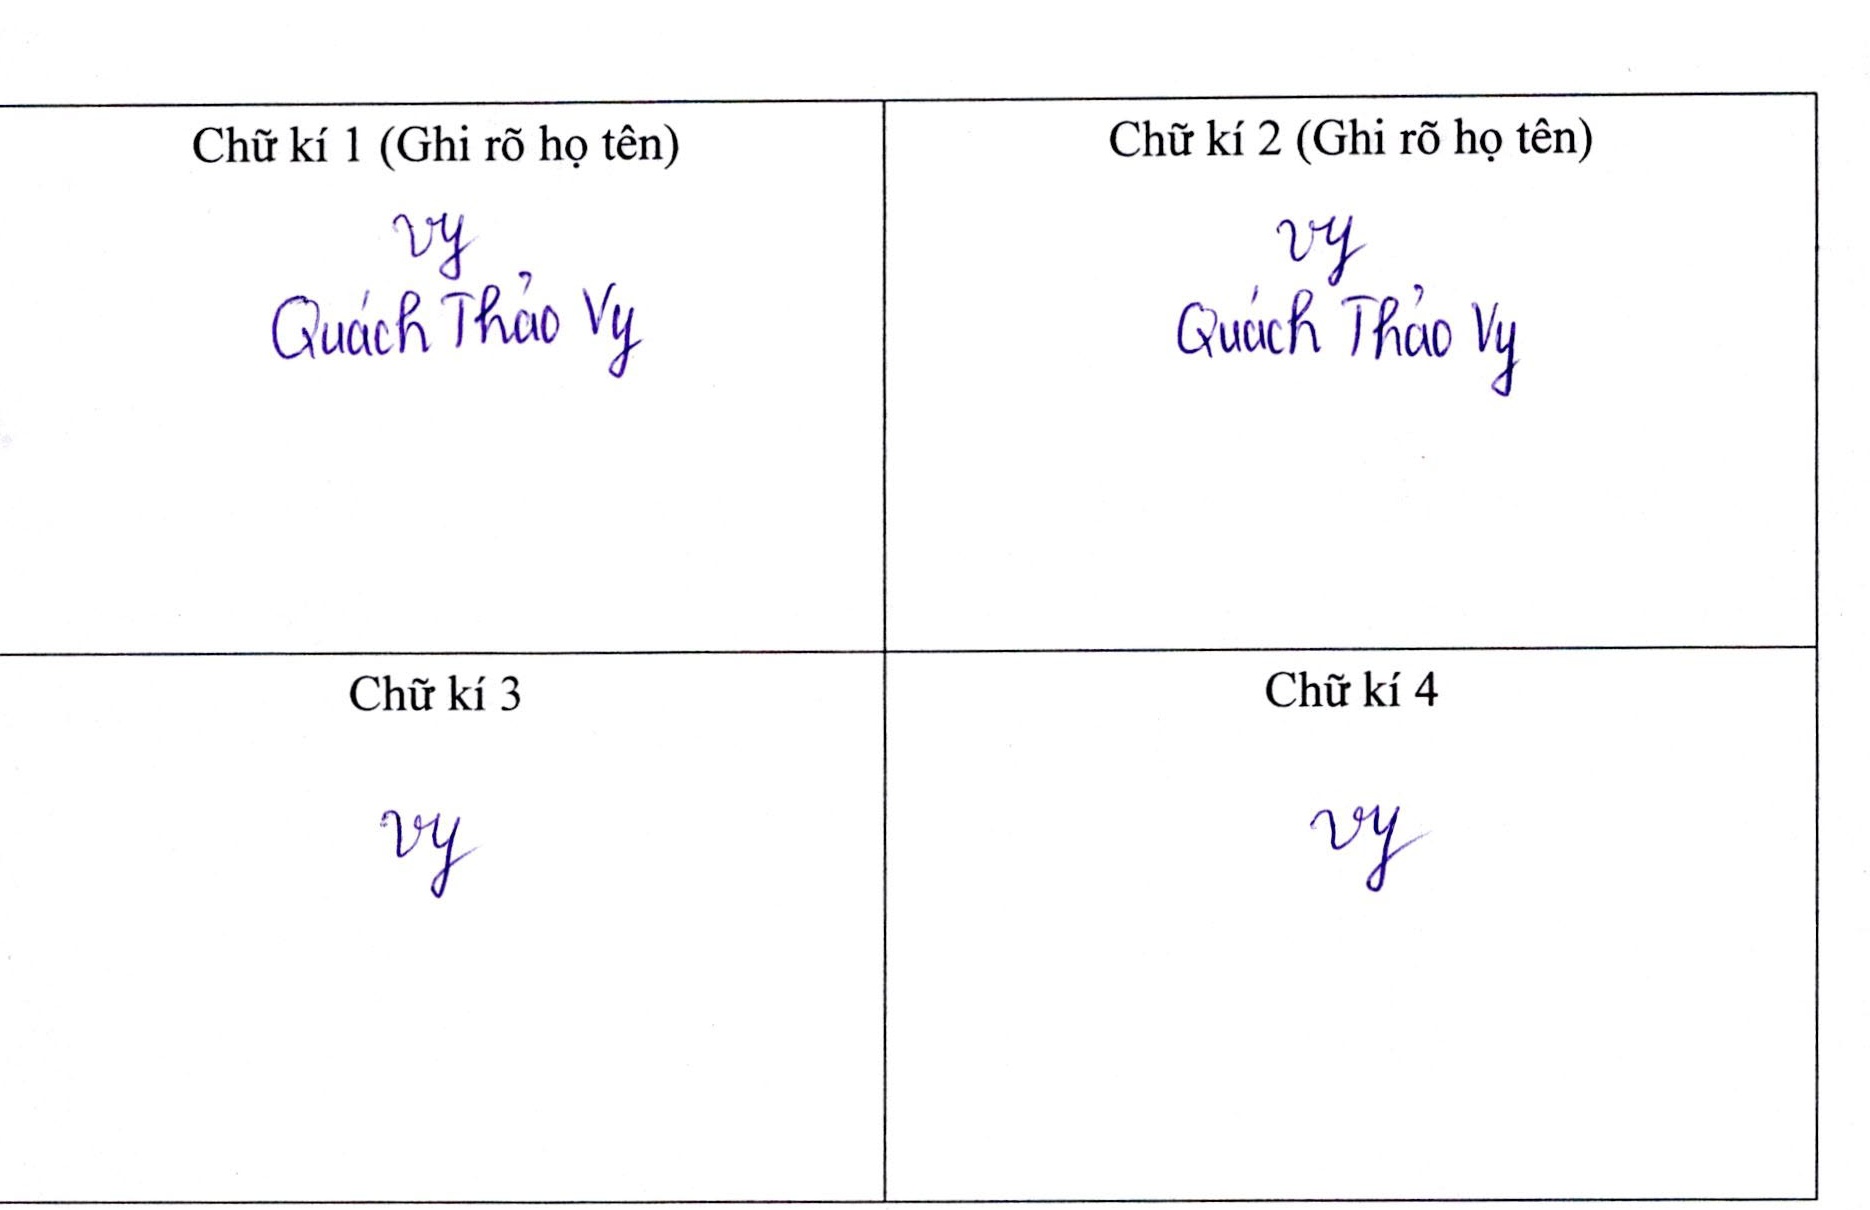 Chữ kí 1 (Ghi rõ họ tên)
vy
Quách Thảo Vy
Chữ kí 2 (Ghi rõ họ tên)
vy
Quách Thảo Vy
Chữ kí 3
vy
Chữ kí 4
vy